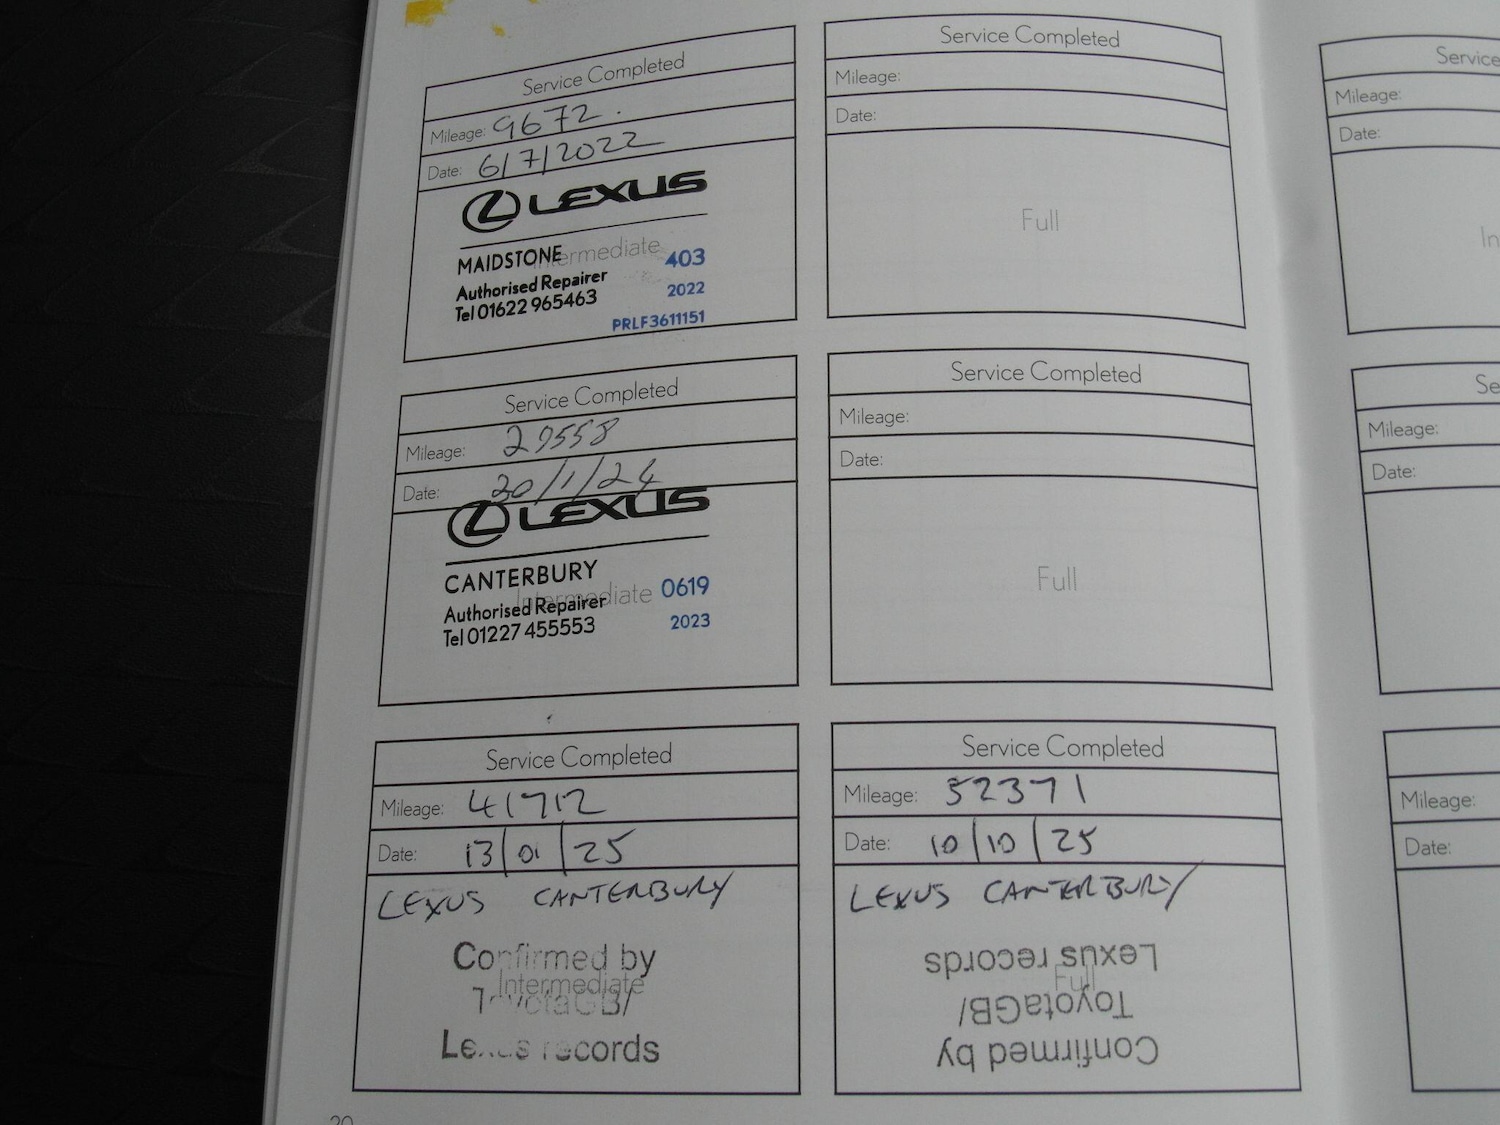 Service Completed
Mileage: 9672.
Date: 6/7/2022
LEXUS
MAIDSTONE
Intermediate
403
Authorised Repairer
2022
Tel 01622 965463
PRLF3611151
Service Completed
Mileage:
Date:
Full
Service
Mileage:
Date:
In
Service Completed
Mileage: 29558
Date: 30/1/24
LEXUS
CANTERBURY
Intermediate
0619
Authorised Repairer
2023
Tel 01227 455553
Service Completed
Mileage:
Date:
Full
Se
Mileage:
Date:
Service Completed
Mileage: 41712
Date: 13/01/25
LEXUS CANTERBURY
Confirmed by
Intermediate
ToyotaGB/
Lexus records
Service Completed
Mileage: 52371
Date: 10/10/25
LEXUS CANTERBURY
Full
Confirmed by
ToyotaGB/
Lexus records
Mileage:
Date: